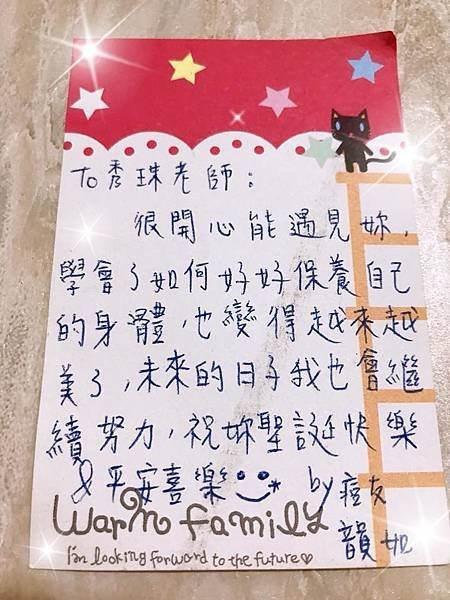 To 秀珠老師:
很開心能遇見妳,
學會了如何好好保養自己
的身體,也變得越來越
美了,未來的日子我也會繼
續努力,祝妳聖誕快樂
&平安喜樂 by 痘友
韻如
Warm family
I'm looking forward to the future♡